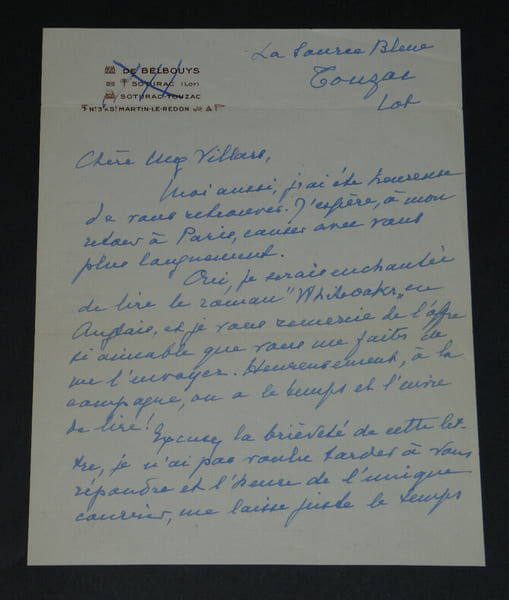 DE BELBOUYS
SOTURAC (LOT)
SOTURAC-TOUZAC
N° 3 A ST MARTIN-LE-REDON
La Source Bleue
Touzac
Lot
Chère Mme Villars,
Moi aussi, j'ai été heureuse
de vous retrouver. J'espère, à mon
retour à Paris, causer avec vous
plus longuement.
Oui, je serais enchantée
de lire le roman "Whiteoaks" en
Anglais, et je vous remercie de l'offre
si aimable que vous me faites de
me l'envoyer. Heureusement, à la
campagne, on a le temps et l'envie
de lire! Excusez la brièveté de cette let-
tre, je n'ai pas voulu tarder à vous
répondre et l'heure de l'unique
courrier, me laisse juste le temps